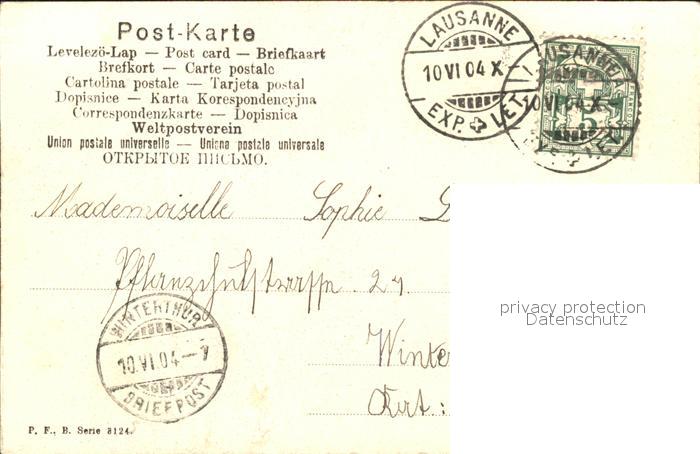 Post-Karte
Levelezö-Lap — Post card — Briefkaart
Brefkort — Carte postale
Cartolina postale — Tarjeta postal
Dopisnice — Karta Korespondencyjna
Correspondenzkarte — Dopisnica
Weltpostverein
Union postale universelle — Unione postale universale
ОТКРЫТОЕ ПИСЬМО.
LAUSANNE
10 VI 04 X
EXP. LET.
LAUSANNE
10 VI 04 X
5
Mademoiselle Sophie G
Pflanzschulstrasse 27.
privacy protection
Datenschutz
WINTERTHUR
10.VI.04 – 7
BRIEFPOST
Winte
P. F., B. Serie 3124.